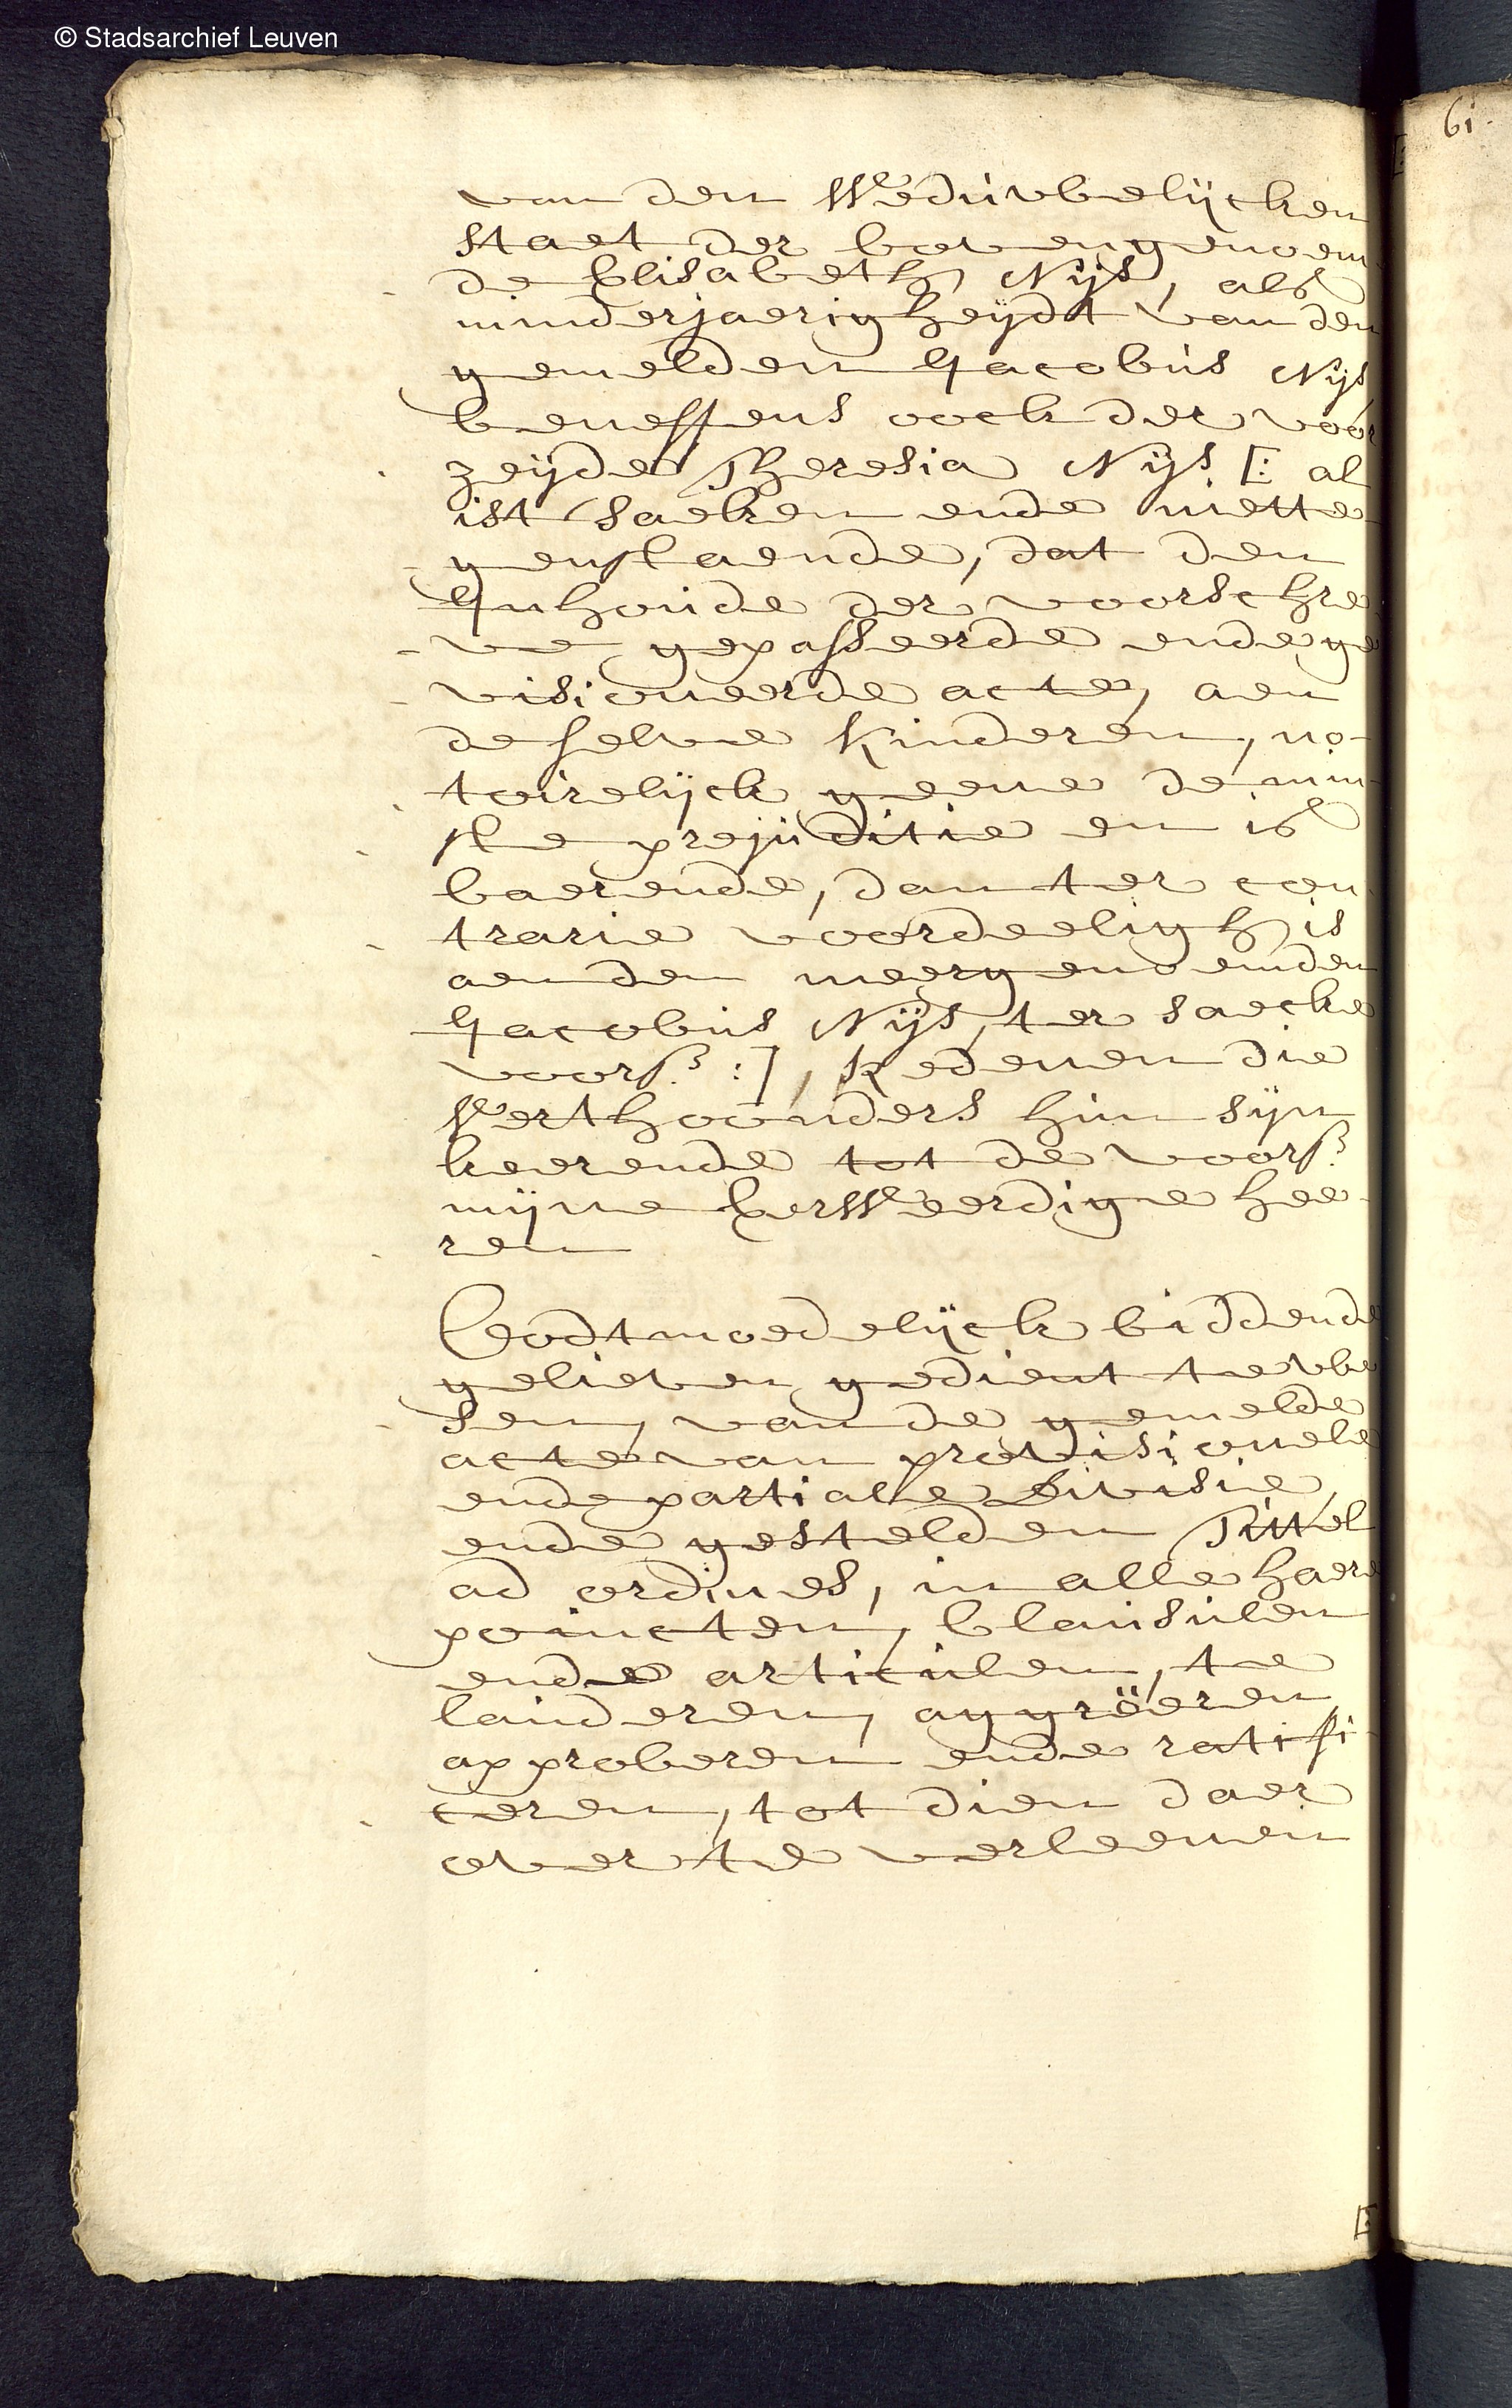 © Stadsarchief Leuven
61.
van den Weduwelijcken
staet der bovengenoem
de Elisabeth Nijs, als
minderjaerigheijdt van den
gemelden Jacobus Nijs,
beneffens oock der voor
zeijde Theresia Nijs [: al
ist saeken ende niette
genstaende, dat den
Inhoude der voorschre
ve gepasseerde ende ge
visioneerde acte, aen
de selve kinderen, no
toirelijck geene de min
ste prejuditie en is
baerende, dan ter con
trarie voordeeligh is
aen den meergenoemden
Jacobus Nijs, ter saecke
voors. :], Redenen die
Verthoonders hun sijn
keerende tot de voors.
mijne Eerweerdige hee
ren
Oodtmoedelijck biddende
gelieven gedient te we
sen, van de gemelde
acte van provisionele
ende partiale Divisie,
ende gestelden Tittel
ad ordines, in alle haere
poincten, Clausulen
ende articulen, te
lauderen, aggrëeren
approberen ende ratifi
ceren, tot dien daer
over te verleenen